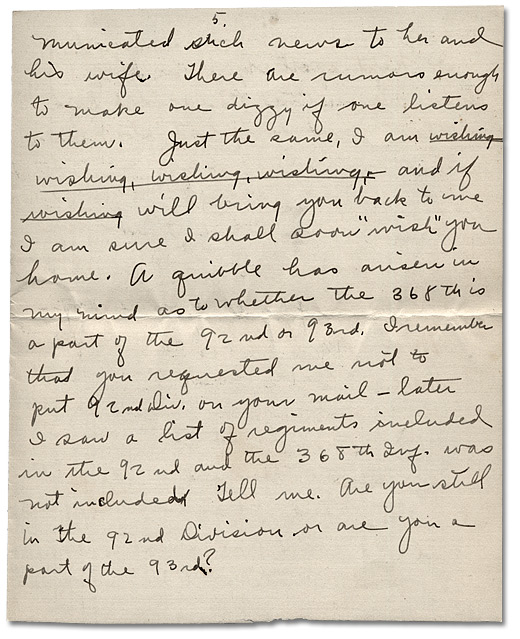 5.
municated such news to her and
his wife. There are rumors enough
to make one dizzy if one listens
to them. Just the same, I am wishing
wishing, wishing, wishing, - and if
wishing will bring you back to me
I am sure I shall soon "wish" you
home. A quibble has arisen in
my mind as to whether the 368th is
a part of the 92nd or 93rd. I remember
that you requested me not to
put 92nd Div. on your mail - later
I saw a list of regiments included
in the 92nd and the 368th Inf. was
not included. Tell me. Are you still
in the 92nd Division or are you a
part of the 93rd?